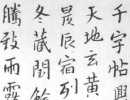 千字帖興
天地玄黃
昃辰宿列
冬藏閏餘
騰致雨露